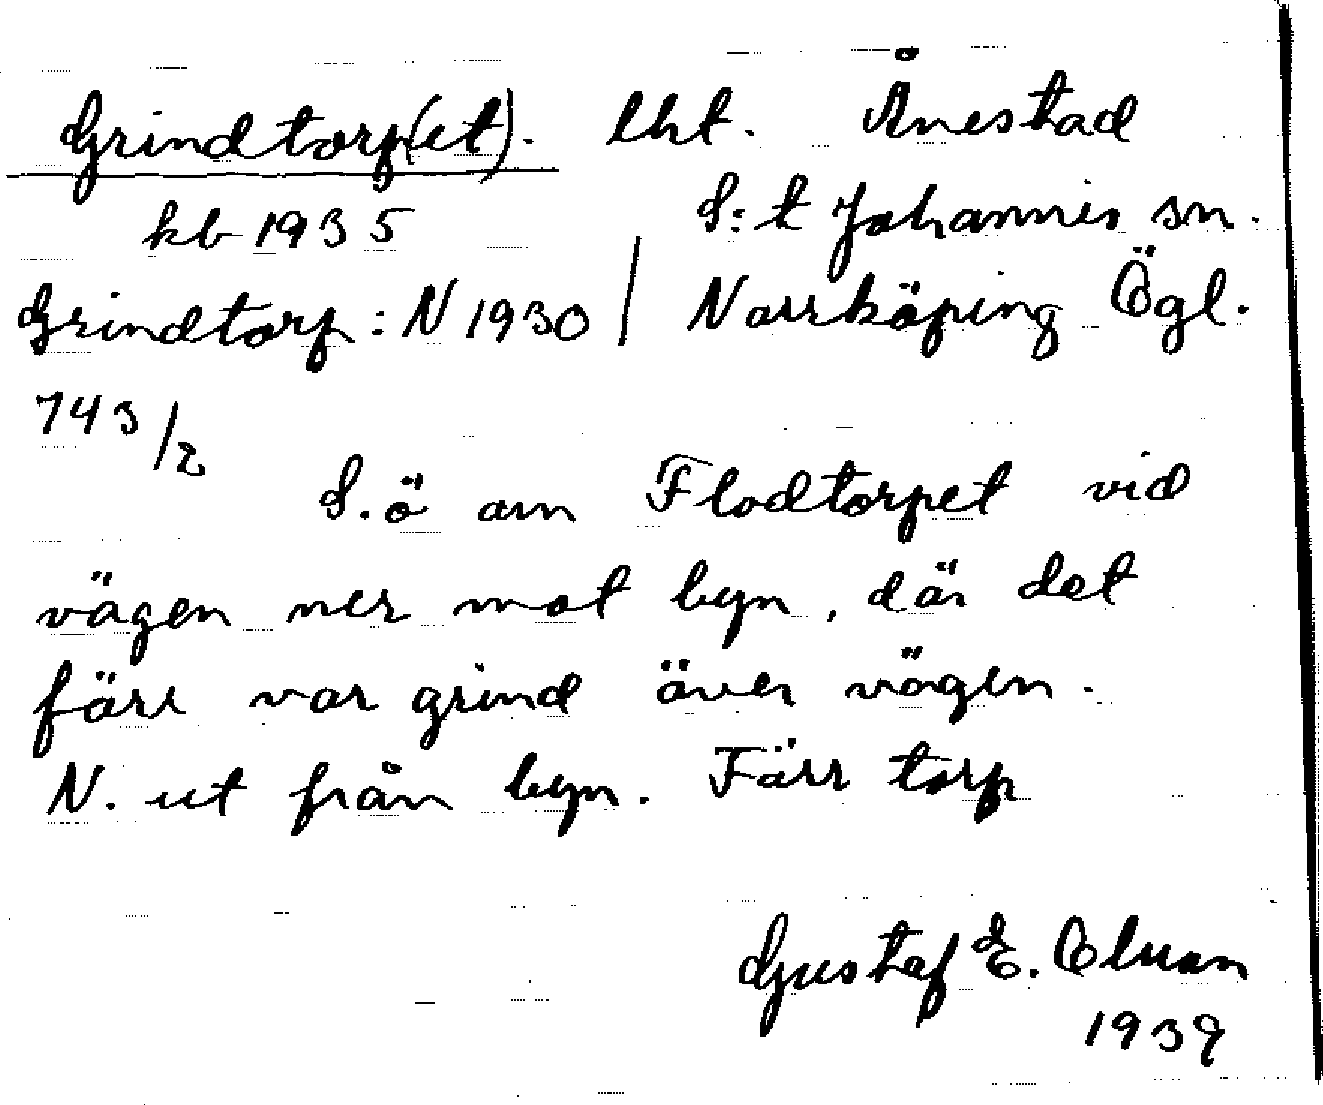 Grindtorp(et). lht. Ånestad
kb 1935 S:t Johannes sn.
Grindtorp: N 1930 / Norrköping Ögl.
743/2
S.ö om Flodtorpet vid
vägen ner mot byn, där det
förr var grind över vägen.
N. ut från byn. Förr torp
Gustaf E.
1939